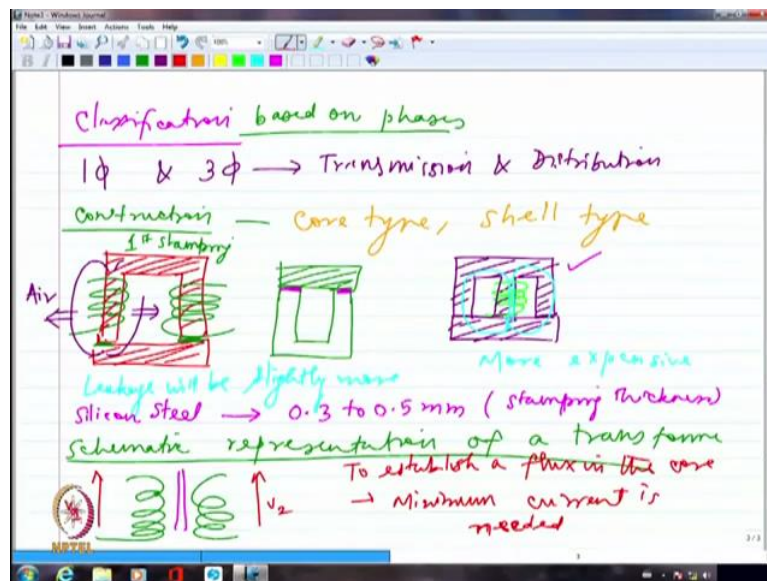 Note3 - Windows Journal
File Edit View Insert Actions Tools Help
100%
B I
Classification based on phases
1ϕ & 3ϕ → Transmission & Distribution
Construction — Core type, Shell type
1st stamping
Air
Leakage will be slightly more
More expensive
Silicon Steel → 0.3 to 0.5 mm (Stamping Thickness)
Schematic representation of a transforme
To establish a flux in the core
→ Minimum current is
needed
V2
NPTEL
3/3
3